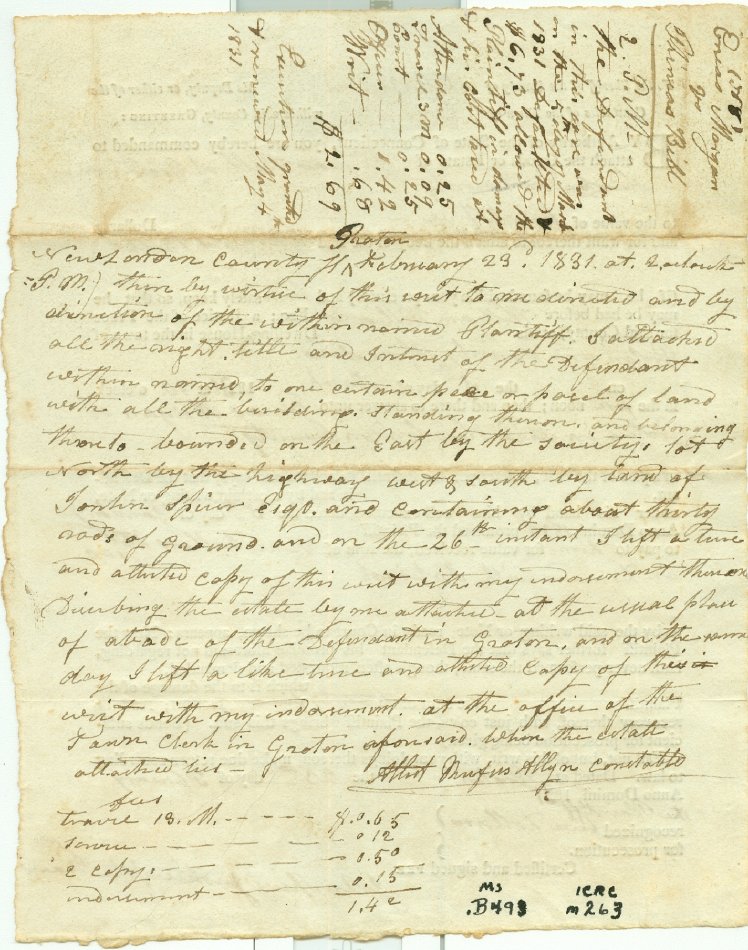 Enias Morgan
vs
Phineas Bill
2. P.M.
the Defendant
in this
on the 5 day
1831 Defaulted &
$6.73 allowed the
Plaintiff in damage
& his cost taxed at
Attendance 0.25
Travel 3 M 0.09
Court — 0.25
Officer — 1.42
Writ — .68
$2.69
Execution granted
& renewed. May 4
1831
Groton
New London County ss ^ February 23d. 1831. at. 2, oclock
P.M.) then by virtue of this writ to me directed and by
direction of the within named Plantiff. I attached
all the right. title and Intrest of the Defendant
within named to one certain peace or pacel of land
with all the building. standing theron. and belonging
thereto - bounded on the East by the society, lot
North by the highway west & south by land of
Spicer Esqr. and containing about thirty
rods of ground. and on the 26th instant I left a true
and attested copy of this writ with my indorsement thereon
Discribing the estate by me attached - at the usual place
of abode of the Defendant in Groton, and on the same
day I left a like true and attested copy of this
writ with my indorsement. at the office of the
Town Clerk in Groton aforesaid. When the estate
attached lies —
Attest Rufus Allyn Constable
fees
travil 13. M. - - - - - $.0.65
service - - - - - 0.12
2 copy, - - - - - 0.50
indorsement - - - 0.15
1.42
MS
.B498
ICRC
m263